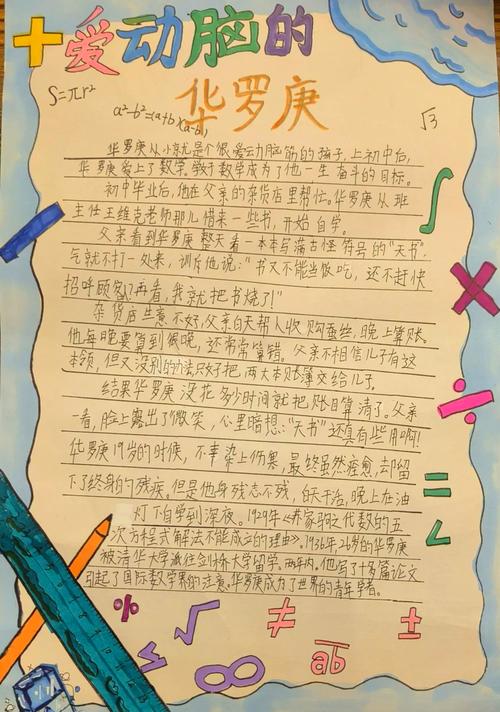 +爱动脑的
华罗庚
S=πr²
a²-b²=(a+b)(a-b)
√3
华罗庚从小就是个很爱动脑筋的孩子,上初中后,
华罗庚爱上了数学,数学成为了他一生奋斗的目标。
初中毕业后,他在父亲的杂货店里帮忙。华罗庚从班
主任王维克老师那儿借来一些书,开始自学。
父亲看到华罗庚整天看一本本写满古怪符号的“天书”,
气就不打一处来,训斥他说:“书又不能当饭吃,还不赶快
招呼顾客!再看,我就把书烧了!”
杂货店生意不好,父亲白天帮人收购蚕丝,晚上算账。
他每晚要算到很晚,还常常算错。父亲不相信儿子有这
本领,但又没别的办法只好把两大本账簿交给儿子。
结果华罗庚没花多少时间就把账目算清了。父亲
一看,脸上露出了微笑,心里暗想:“天书”还真有些用啊!
华罗庚19岁的时候,不幸染上伤寒,最终虽然痊愈,却留
下了终身的残疾,但是他身残志不残,白天干活,晚上在油
灯下自学到深夜。1929年《苏家驹之代数的五
次方程式解法不能成立的理由》。1936年,26岁的华罗庚
被清华大学派往剑桥大学留学。两年内,他写了十多篇论文
引起了国际数学界的注意。华罗庚成为了世界的青年学者。
∫
-
×
÷
=
√
%
√
≠
±
≤
∞
ab